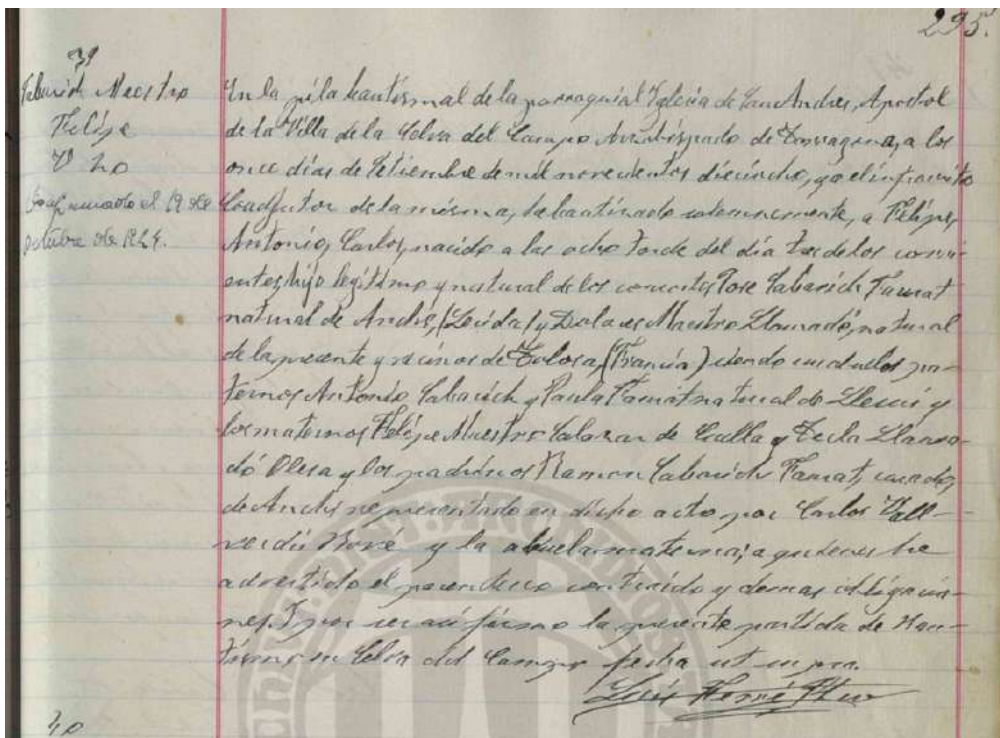 295.
39
Maestro
Felipe
Vº no
Confirmado el 19 de
octubre de 1924.
En la pila bautismal de la parroquial Iglesia de San Andres, Apostol
de la Villa de la Selva del Campo Arzobispado de Tarragona, a los
once días de Setiembre de mil novecientos dieciocho, yo el infrascrito
Coadjutor de la misma, he bautizado solemnemente, a Felipe,
Antonio, Carlos, nacido a las ocho tarde del día tres de los corri-
entes, hijo legítimo y natural de los consortes José Sabarich
natural de (Lerida) y Dolores Maestro Llauradó, natural
de la presente y vecinos de Tolosa, (Francia) siendo sus abuelos pa-
ternos Antonio Sabarich y Paula natural de y
los maternos Felipe Maestro Salazar de y Tecla Llaura-
dó Olesa y los padrinos Ramon Sabarich casado,
de representado en dicho acto por Carlos Vall-
verdú y la abuela materna; a quienes he
advertido el parentesco contraido y demas obligacio-
nes. Y por ser así firmo la presente partida de Bau-
tismo en Selva del Campo fecha ut supra.
Luis
40